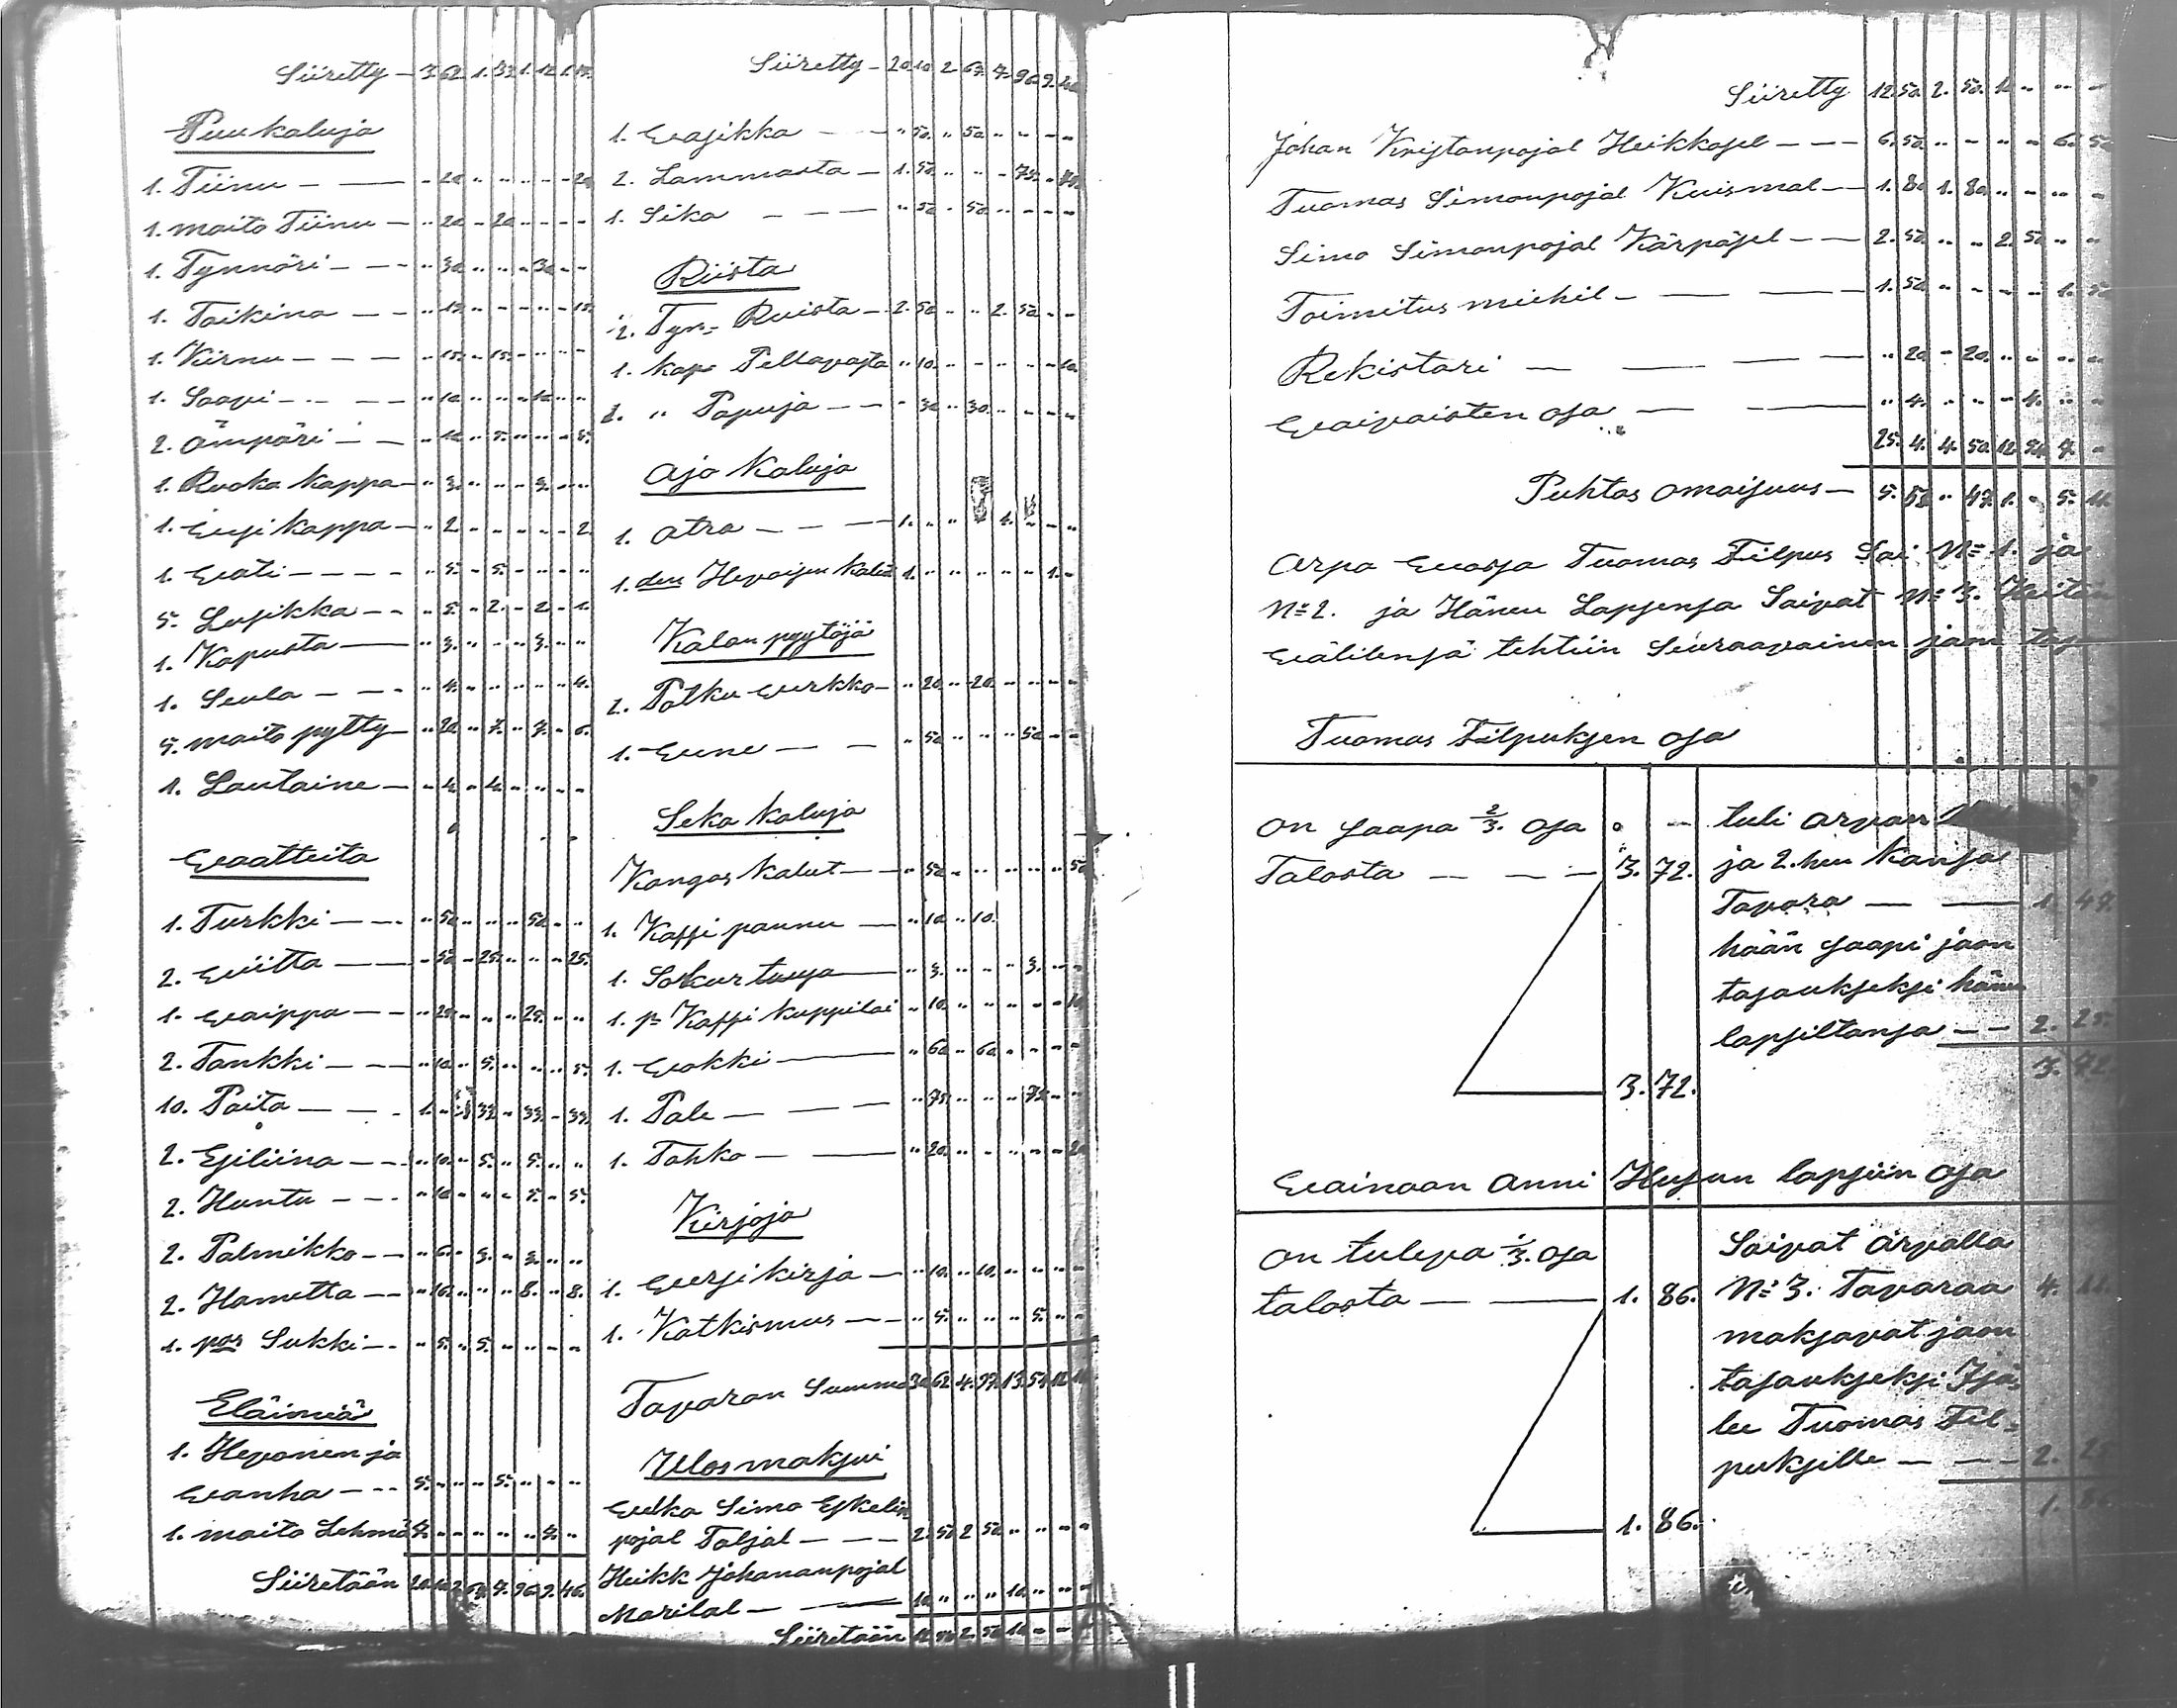 Siiretty - 3. 62. 1. 33. 1. 12. 1. 17.
Puukaluja
1. Tiinu - - " 20. " " " " " 20.
1. maito Tiinu - " 20. " 20. " " " "
1. Tynnöri - - - " 30. " " " 30. " "
1. Taikina - - " 15. " " " " " 15.
1. Kiirnu - - - " 15. " 15. " " " "
1. Saapi - - - " 10. " " " 10. " "
2. Ämpäri - - " 10. " 5. " " " 5.
1. Ruoka kappa - " 3. " " " 3. " "
1. Wesi kappa - " 2. " " " " " 2.
1. Wati - - - - " 5. " 5. " " " "
5. Lusikka - - " 5. " 2. " 2. " 1.
1. Kapusta - " 3. " " " 3. " "
1. Seula - - - " 4. " " " " " 4.
5. maito pytty - " 20. " 7. " 7. " 6.
1. Lautaine - " 4. " 4. " " " "
Waatteita
1. Turkki - - " 50. " " " 50. " "
2. Wiitta - - " 50. " 25. " " " 25.
1. Waippa - - " 25. " " " 25. " "
2. Tankki - - - " 10. " 5. " " " 5.
10. Paita - - - 1. " " 33. " 33. " 33.
2. Esiliina - - " 10. " 5. " 5. " "
2. Huntu - - - " 10. " " " 5. " 5.
2. Palmikko - - " 6. " 3. " 3. " "
2. Hametta - - " 16. " " " 8. " 8.
1. par Sukki - - " 5. " 5. " " " "
Eläimiä
1. Heponen ja
Wanha - - 5. " " " 5. " " "
1. maito Lehmä 7. " " " " " 7. "
Siiretään 20. 10. 2. 67. 7. 96. 9. 46.
Siiretty - 20. 10. 2. 67. 7. 96. 9. 46.
1. Wasikka - - " 50. " 50. " " " "
2. Lammasta - 1. 50. " " " 75. " 75.
1. Sika - - - " 50. " 50. " " " "
Riista
2. Tyn= Ruista - 2. 50. " " 2. 50. " "
1. Kap= Pellavasta " 10. " " " " " 10.
2. " Papuja - - " 30. " 30. " " " "
Ajo Kaluja
1. Atra - - - 1. " " " 1. " " "
1. den Hevoisen Kalu 1. " " " " " 1. "
Kalan pyytöjä
2. Patku Werkko - " 20. " 20. " " " "
1. Wene - - " 50. " " " 50. " "
Seka Kaluja
Kangas Kalut - - " 50. " " " " " 50.
1. Kaffi pannu - " 10. " 10.
1. Sokur toosa - " 3. " " " 3. " "
1. p= Kaffi kuppilai " 10. " " " " " 10.
1. Wakki - " 60. " 60. " " " "
1. Pale - - - " 75. " " " 75. " "
1. Tahko - - " 20. " " " " " 20.
Kirjoja
1. Wersikirja - " 10. " 10. " " " "
1. Katkismus - - " 5. " " " 5. " "
Tavaran Summa 30. 62. 4. 97. 13. 54. 12. 11.
Ulosmaksui
Welka Simo Eskelin
pojal Taljal - - - 2. 50. 2. 50. " " " "
Heikk Johananpojal
Marilal - - 10. " " " 10. " " "
Siiretään 12. 50. 2. 50. 10. " " "
Siiretty 12. 50. 2. 50. 10. " " "
Johan Kristanpojal Heikkasel - - - 6. 50. " " " " 6. 50.
Tuomas Simonpojal Kuismal - - 1. 80. 1. 80. " " " "
Simo Simonpojal Kärpäsel - - 2. 50. " " 2. 50. " "
Toimitus miehil - - - 1. 50. " " " " 1. 50.
Rekistari - - - - " 20. " 20. " " " "
Waivaisten osa - - " 4. " " " 4. " "
25. 4. 4. 50. 12. 54. 7. "
Puhtas omaisuus - 5. 58. " 47. 1. " 5. 11.
Arpa Wuossa Tuomas Filpus Sai N= 1. ja
N= 2. ja Hänen Lapsensa Saivat N= 3. Heitän
Wälilensä tehtiin Seuraavainen jaon
Tuomas Filpuksen osa
on saapa 2/3. osa
Talosta - - - 3. 72.
3. 72.
tuli arvan
ja 2. hen Kansa
Tavara - - 1. 47.
hään saapi jaon
tasaukseksi hänen
lapsiltansa - - 2. 25.
3. 72.
Wainaan Anni Husun lapsiin osa
on tuleva 1/3. osa
talosta - - 1. 86.
1. 86.
Saivat arvalla
N= 3. Tavaraa 4. 11.
maksavat jaon
tasaukseksi Isäl=
lee Tuomas Fil=
pukselle - - - 2. 25.
1. 86.